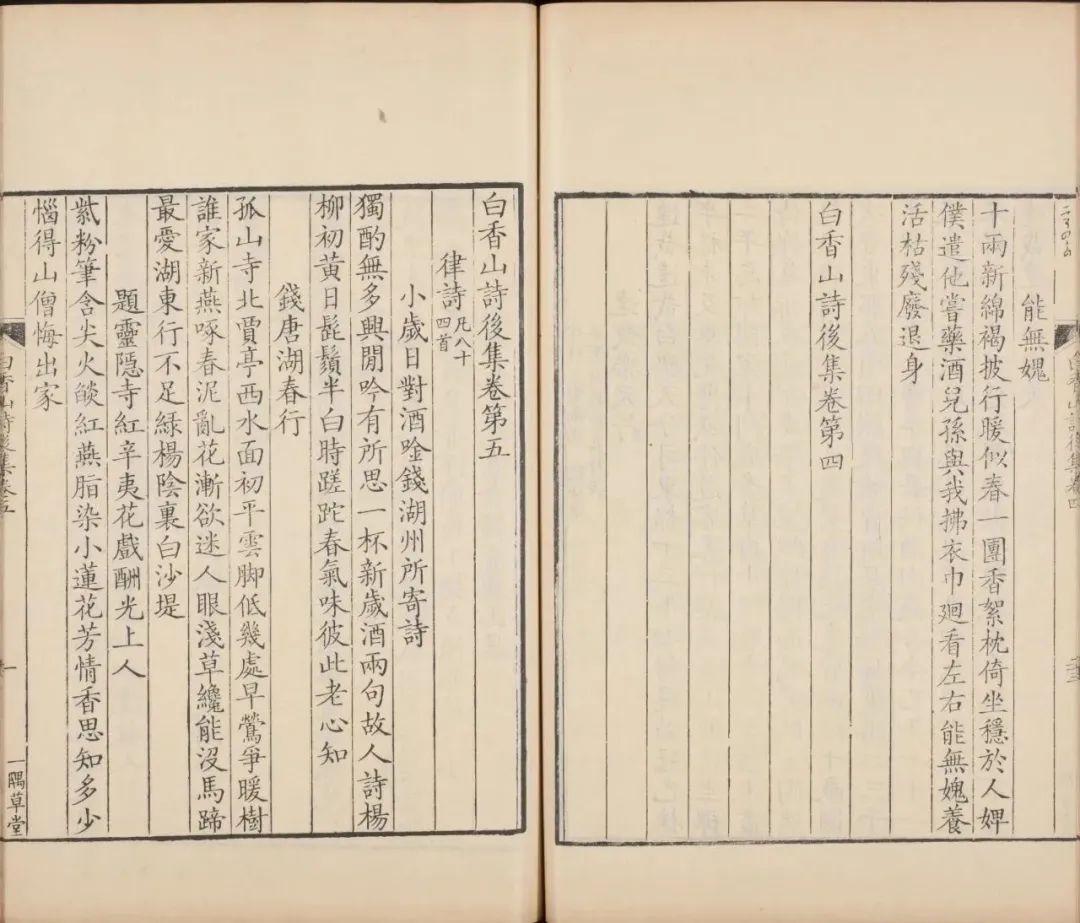 能無媿
十兩新綿褐披行暖似春一團香絮枕倚坐穩於人婢
僕遣他嘗藥酒兒孫與我拂衣巾廻看左右能無媿養
活枯殘廢退身
白香山詩後集卷第四
白香山詩後集卷四
白香山詩後集卷第五
律詩凡八十四首
小歲日對酒唫錢湖州所寄詩
獨酌無多興閒吟有所思一杯新歲酒兩句故人詩楊
柳初黃日髭鬚半白時蹉跎春氣味彼此老心知
錢唐湖春行
孤山寺北賈亭西水面初平雲脚低幾處早鶯爭暖樹
誰家新燕啄春泥亂花漸欲迷人眼淺草纔能沒馬蹄
最愛湖東行不足綠楊陰裏白沙堤
題靈隱寺紅辛夷花戲酬光上人
紫粉筆含尖火燄紅燕脂染小蓮花芳情香思知多少
惱得山僧悔出家
白香山詩後集卷五
一
一隅草堂